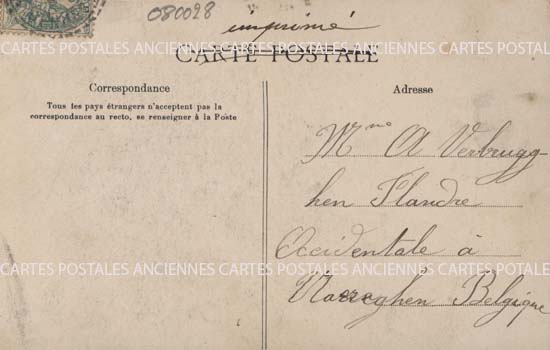 080028
imprimé
CARTES POSTALES ANCIENNES CARTES POSTALES ANCIENNES CARTES POSTALES ANCIENNES
CARTE POSTALE
Correspondance
Tous les pays étrangers n'acceptent pas la
correspondance au recto, se renseigner à la Poste
Adresse
Mme A Verbrugg-
hen Flandre
Occidentale à
CARTES POSTALES ANCIENNES CARTES POSTALES ANCIENNES CARTES POSTALES ANCIENNES
Belgique